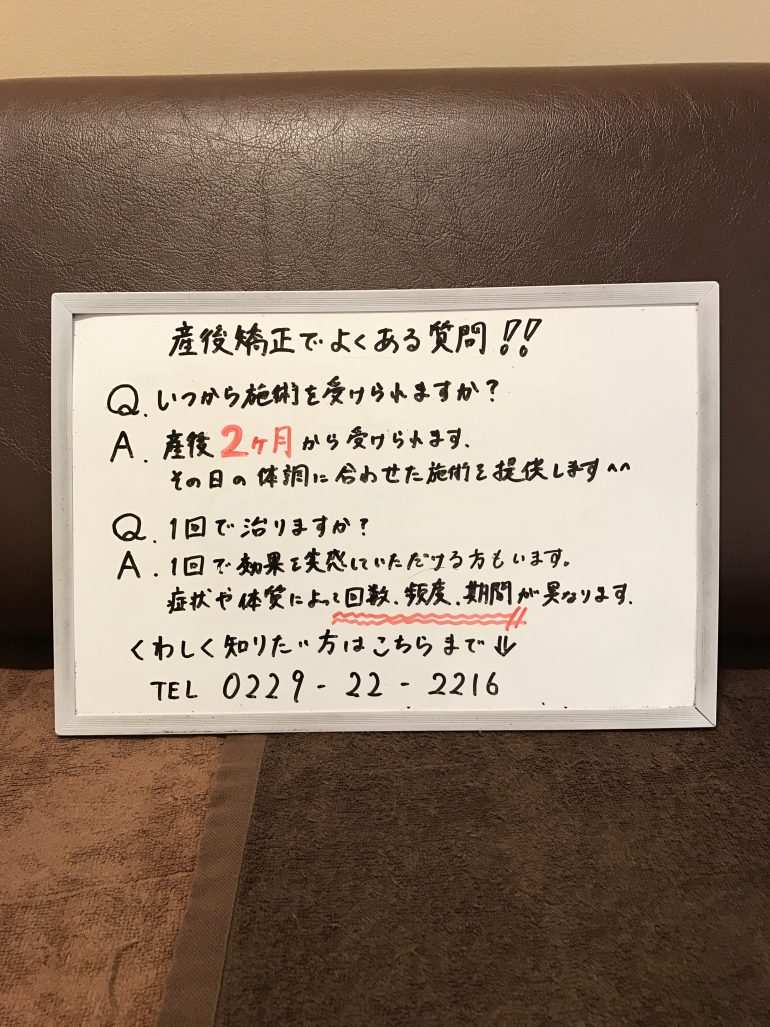 産後矯正でよくある質問!!
Q. いつから施術を受けられますか?
A. 産後2ヶ月から受けられます.
その日の体調に合わせた施術を提供します^^
Q. 1回で治りますか?
A. 1回で効果を実感していただける方もいます。
症状や体質によって回数、頻度、期間が異なります.
くわしく知りたい方はこちらまで↓
TEL 0229-22-2216